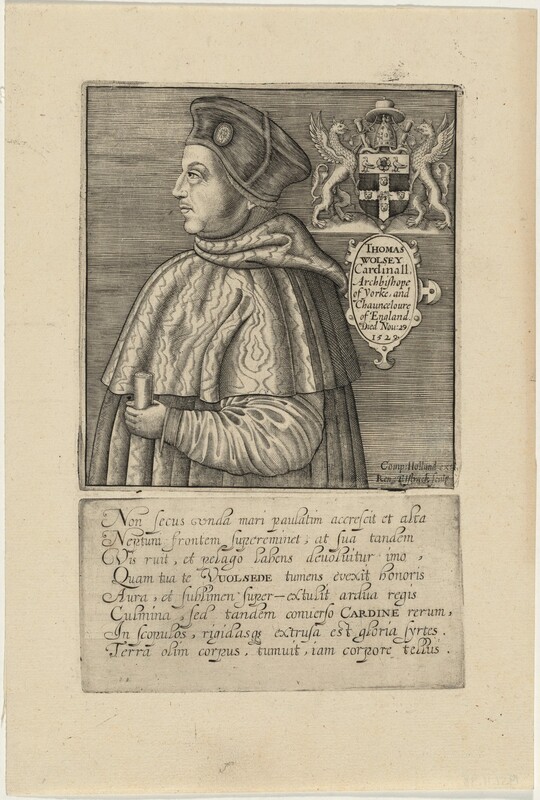 THOMAS
WOLSEY
Cardinall.
Archbishope
of Yorke, and
Chaunceloure
of England.
Died Nov: 29
1529
Comp: Holland exc
Ren: Elstrack sculp
Non secus vnda mari paulatim accrescit et alta
Neptuni frontem supereminet; at sua tandem
Vis ruit, et pelago labens deuoluitur imo,
Quam tua te VUOLSEDE tumens evexit honoris
Aura, et sublimen super-extulit ardua regis
Culmina, sed tandem conuerso CARDINE rerum,
In scopulos, rigidasq; extrusa est gloria syrtes.
Terra olim corpus, tumuit, iam corpore tellus.